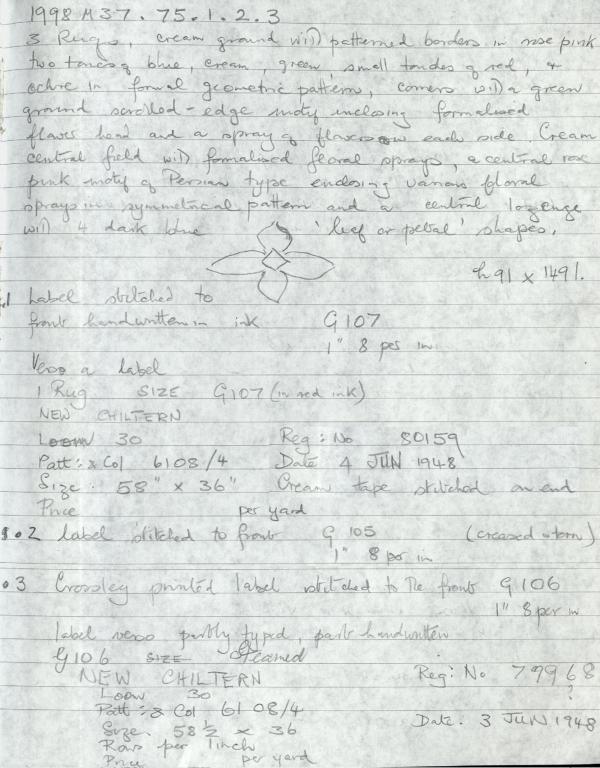 1998 M37. 75. 1. 2. 3
3 Rugs, cream ground with patterned borders in rose pink
two tones of blue, cream, green small touches of red, +
ochre in formal geometric pattern, corners with a green
ground scrolled-edge motif inclosing formalised
flower head and a spray of flowers on each side Cream
central field with formalised floral sprays, a central rose
pink motif of Persian type enclosing various floral
sprays in symmetrical pattern and a central lozenge
with 4 dark blue 'leaf or petal' shapes.
h 91 x 149 l.
.1 Label stitched to
front handwritten in ink G107
1" 8 per in
Verso a label
1 Rug SIZE G107 (in red ink)
NEW CHILTERN
Loom 30 Reg: No 80159
Patt: & Col 6108/4 Date 4 JUN 1948
Size. 58" x 36" Cream tape stitched on end
Price per yard
.2 label stitched to front G 105 (creased + torn)
1" 8 per in
.3 Crossley printed label stitched to the front G106
1" 8 per in
label verso partly typed, part handwritten
G106 SIZE Steamed
NEW CHILTERN Reg: No 79968
?
Loom 30
Patt: & Col 6108/4
Size. 58 1/2 x 36 Date. 3 JUN 1948
Rows per 1 inch
Price per yard